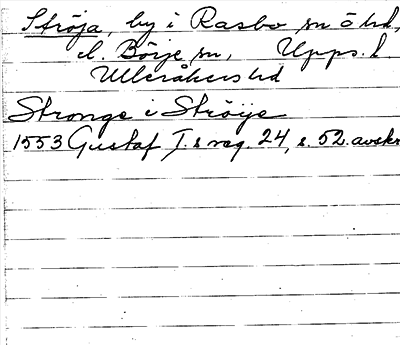 Ströja, by i Rasbo sn ö hd,
el. Börje sn, Upps. l.
Ulleråkers hd
Stronge i Ströije
1553 Gustaf I:s reg. 24, s. 52. avskr